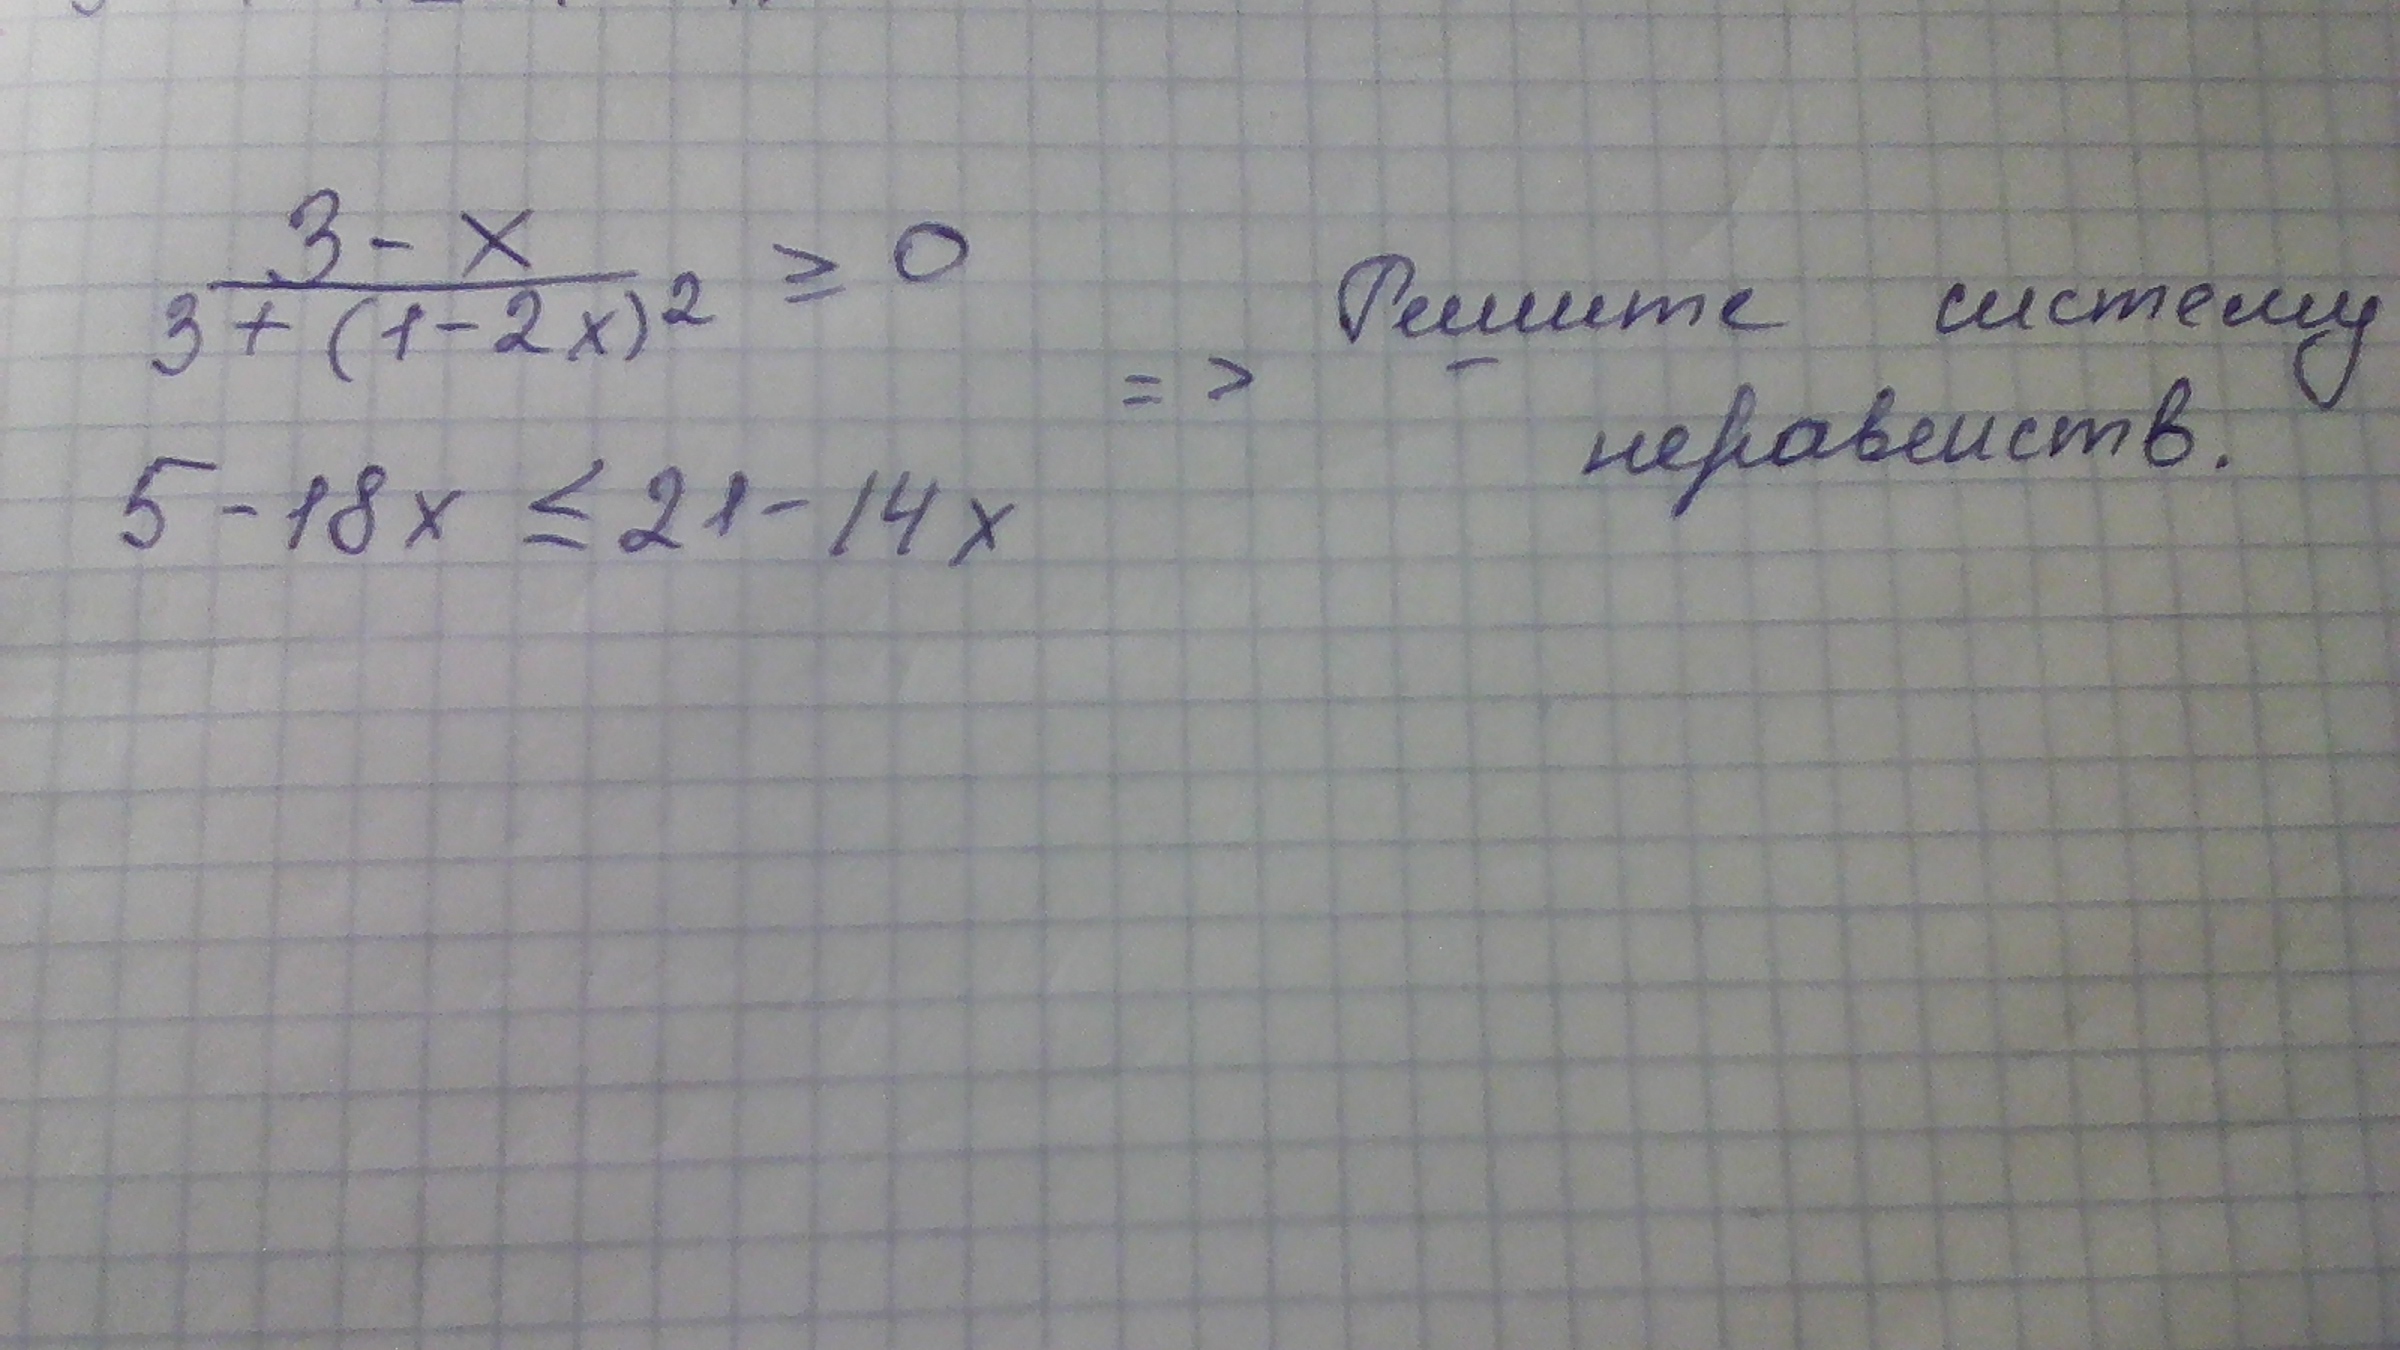 3 - x
3 + (1 - 2x)² ≥ 0
=> Решите систему
неравенств.
5 - 18x ≤ 21 - 14x